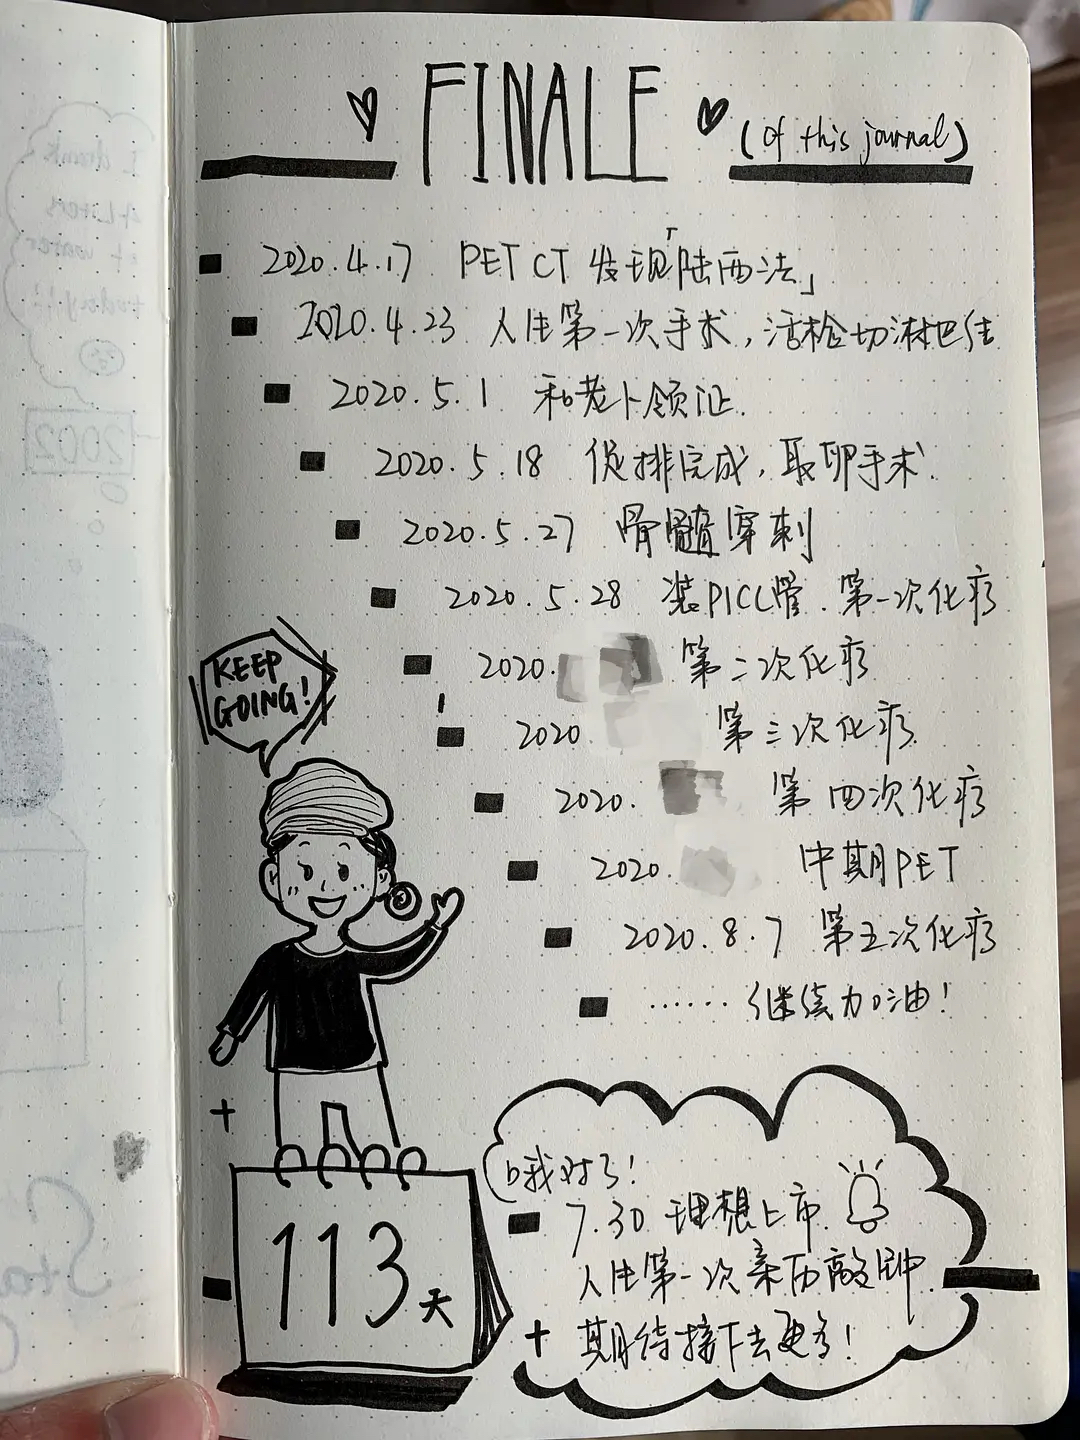 FINALE
(Of this journal)
2020.4.17 PET CT 发现「陆西法」
2020.4.23 人生第一次手术,活检切淋巴结
2020.5.1 和老卜领证.
2020.5.18 促排完成,取卵手术.
2020.5.27 骨髓穿刺
2020.5.28 装PICC管.第一次化疗
2020. 第二次化疗
2020 第三次化疗
2020. 第四次化疗
2020. 中期PET
2020.8.7 第五次化疗
…… 继续加油!
KEEP
GOING!
113天
哦对了!
7.30 理想上市.
人生第一次亲历敲钟
+ 期待接下去更多!
I drank
4 Liters
of water
today!!
2002